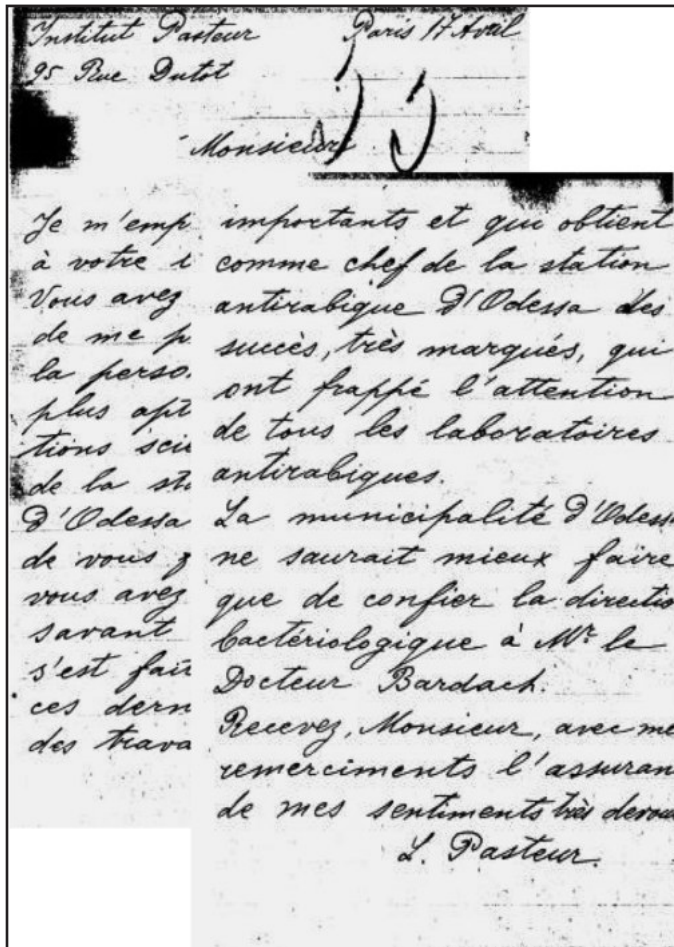 Institut Pasteur Paris 17 Avril
95 Rue Dutot
Monsieur
Je m'emp
à votre i
Vous avez
de me p
la perso
plus apt
tions scie
de la sta
d'Odessa
de vous
vous avez
savant
s'est fait
ces dern
des trava
importants et qui obtient
comme chef de la station
antirabique d'Odessa des
succès, très marqués, qui
ont frappé l'attention
de tous les laboratoires
antirabiques.
La municipalité d'Odess
ne saurait mieux faire
que de confier la directio
bactériologique à Mr. le
Docteur Bardach.
Recevez, Monsieur, avec me
remerciments l'assuran
de mes sentiments très devou
L. Pasteur.